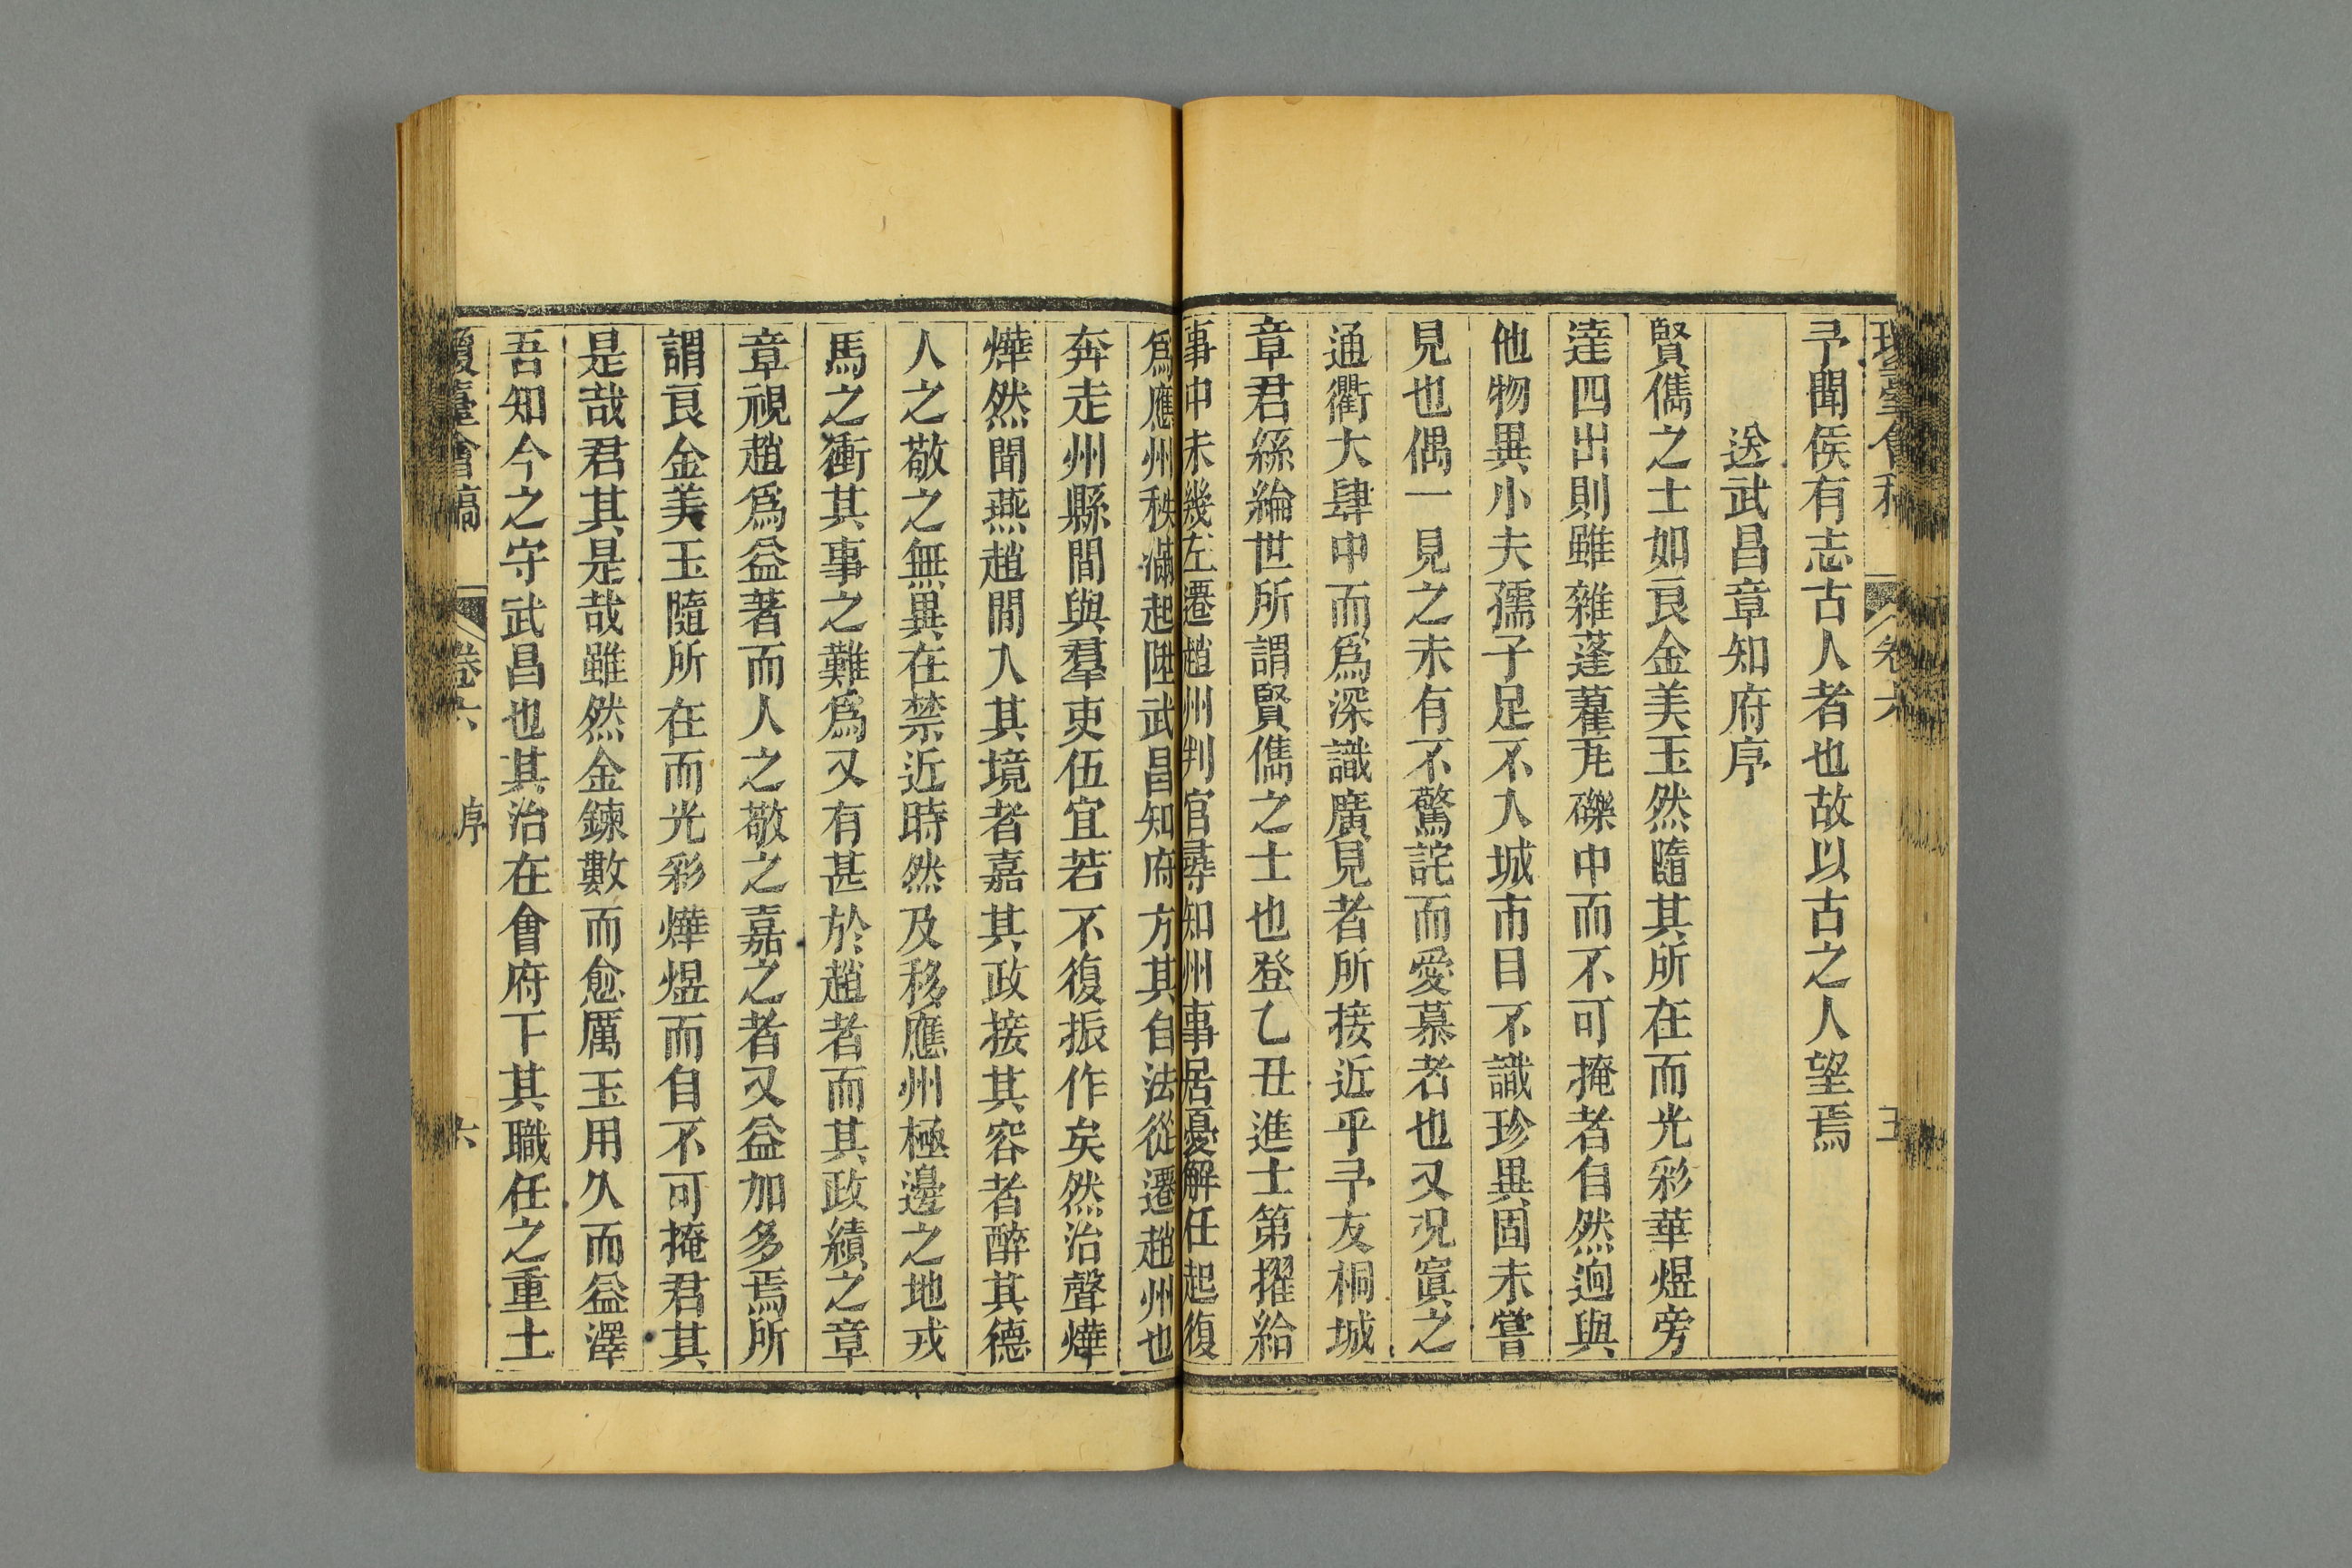 瓊臺會稿 卷六 五
予聞侯有志古人者也故以古之人望焉
送武昌章知府序
賢儁之士如良金美玉然隨其所在而光彩華煜旁
達四出則雖雜蓬藋瓦礫中而不可掩者自然逈與
他物異小夫孺子足不入城市目不識珍異固未嘗
見也偶一見之未有不驚詫而愛慕者也又況寘之
通衢大肆中而爲深識廣見者所接近乎予友桐城
章君綸世所謂賢儁之士也登乙丑進士第擢給
事中未幾左遷趙州判官尋知州事居憂解任起復
爲應州秩滿起陞武昌知府方其自法從遷趙州也
奔走州縣間與羣吏伍宜若不復振作矣然治聲燁
燁然聞燕趙間入其境者嘉其政接其容者醉其德
人之敬之無異在禁近時然及移應州極邊之地戎
馬之衝其事之難爲又有甚於趙者而其政績之章
章視趙爲益著而人之敬之嘉之者又益加多焉所
謂良金美玉隨所在而光彩燁煜而自不可掩君其
是哉君其是哉雖然金鍊數而愈厲玉用久而益澤
吾知今之守武昌也其治在會府下其職任之重土
瓊臺會稿 卷六 序 六